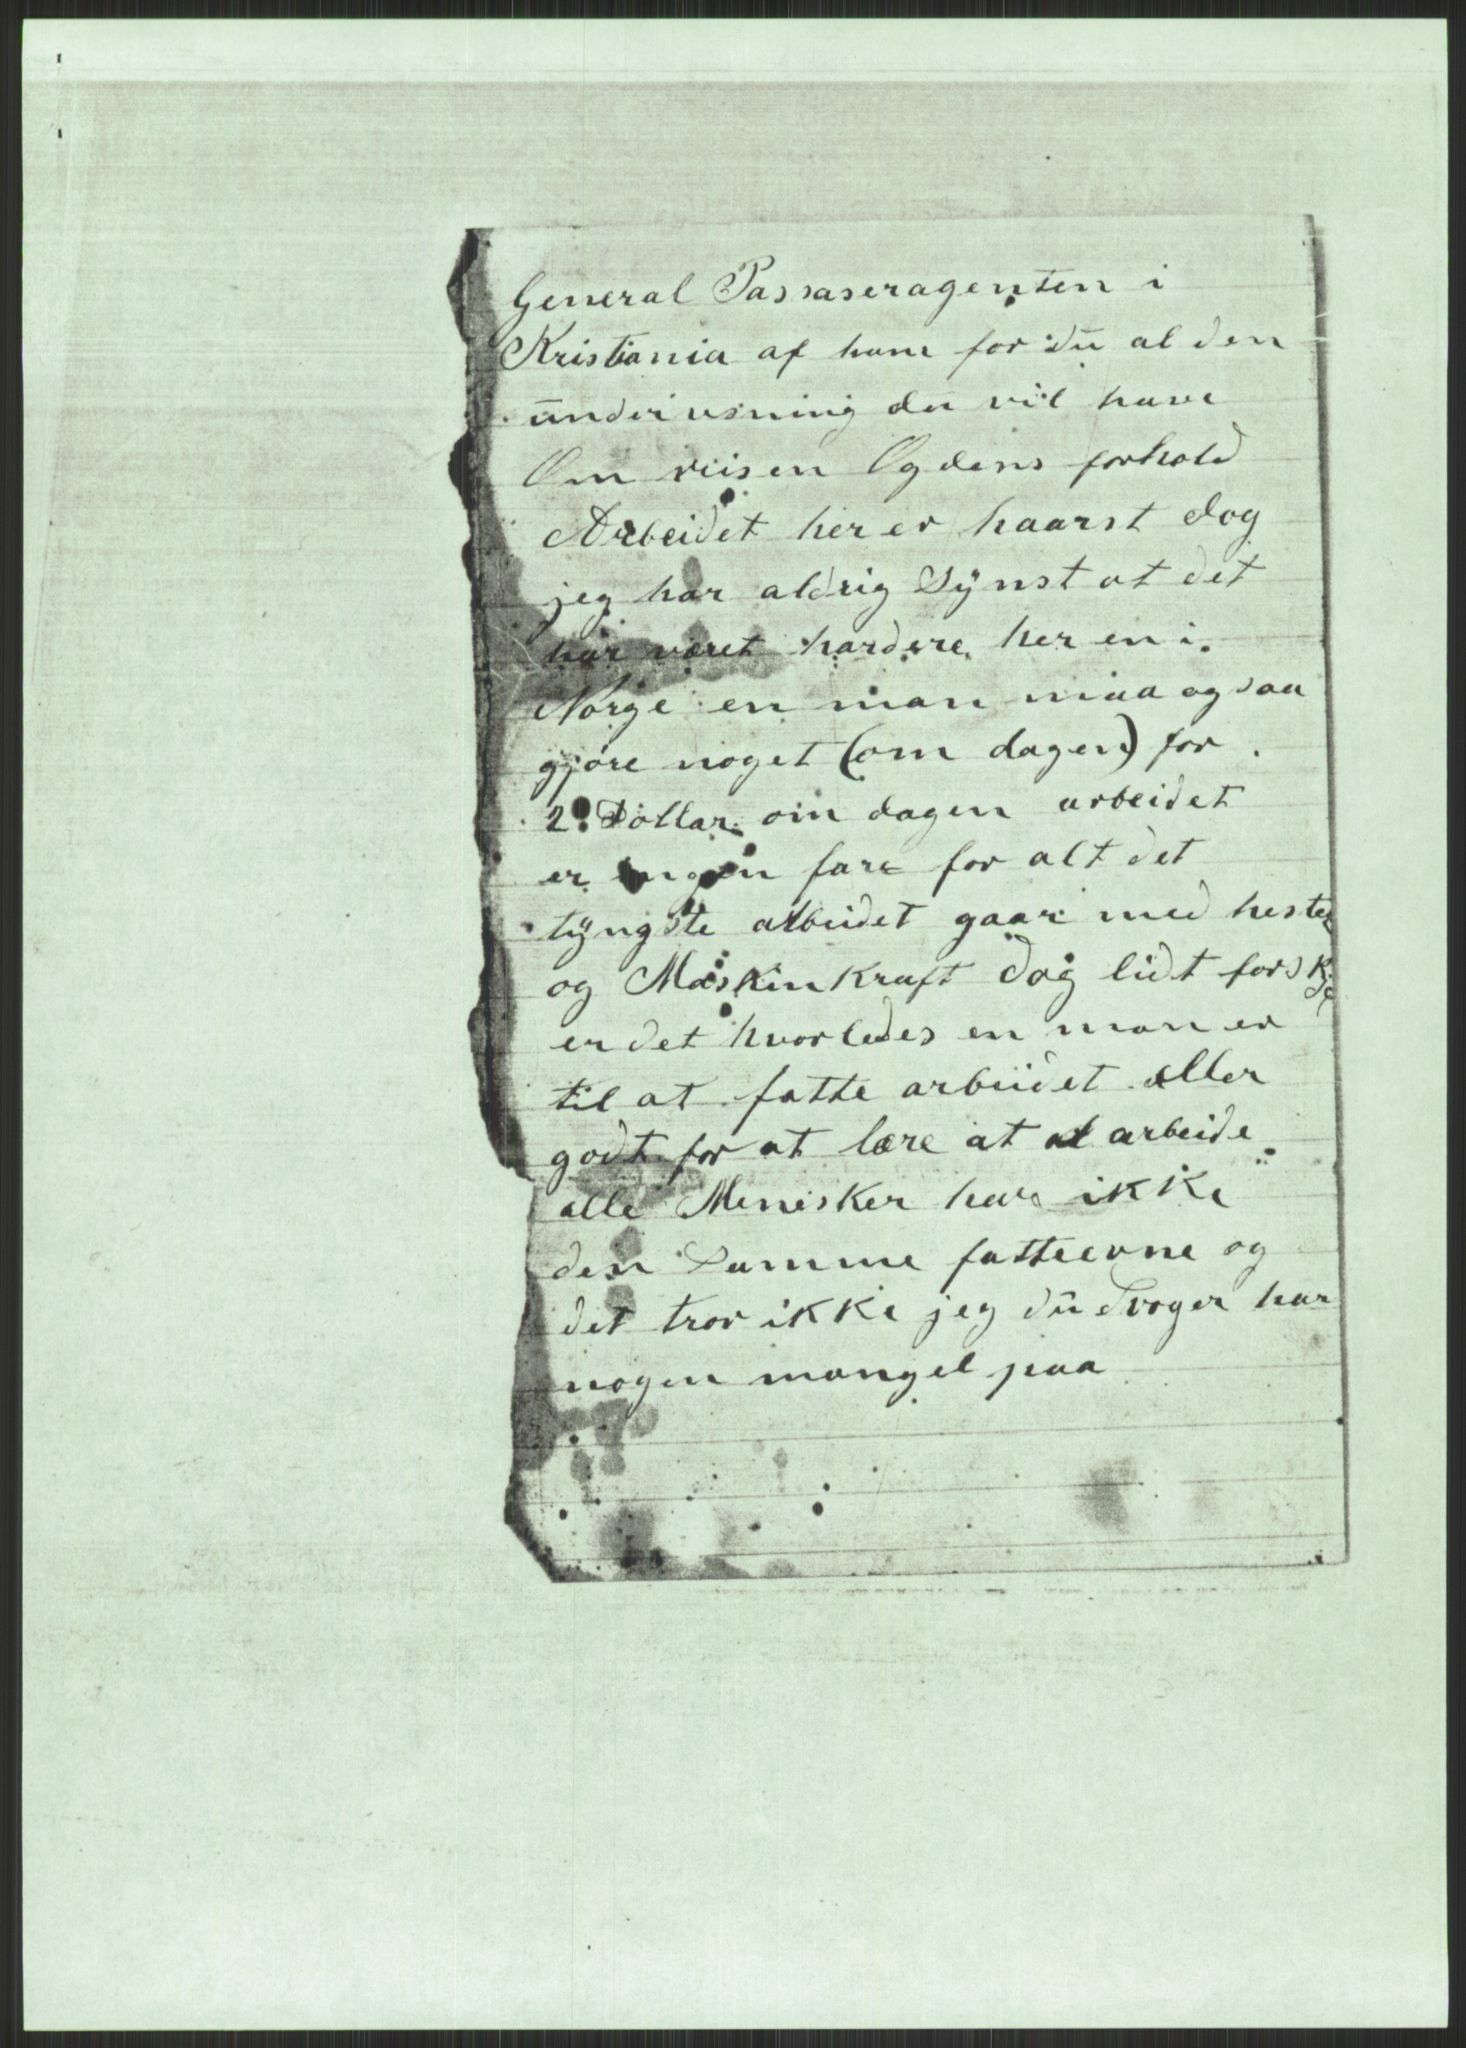 General Passaseragenten i
Kristiania af ham for du al den
undervsning du vil have
Om reisen Og dens forhold
Arbeidet her er haarst dog
jeg har aldrig Synst at det
har været hardere her en i
Norge en man maa og saa
gjøre noget (om dagen) for
2 Dollar om dagen arbeidet
er ingen fare for alt det
tyngste arbeidet gaar med hester
og Maskinkraft dog lidt forskje
er det hvorledes en man er
til at fatte arbeidet eller
godt for at lære at arbeide
alle Menisker har ikke
den Samme fatteevne og
det tror ikke jeg du har
nogen mangel paa